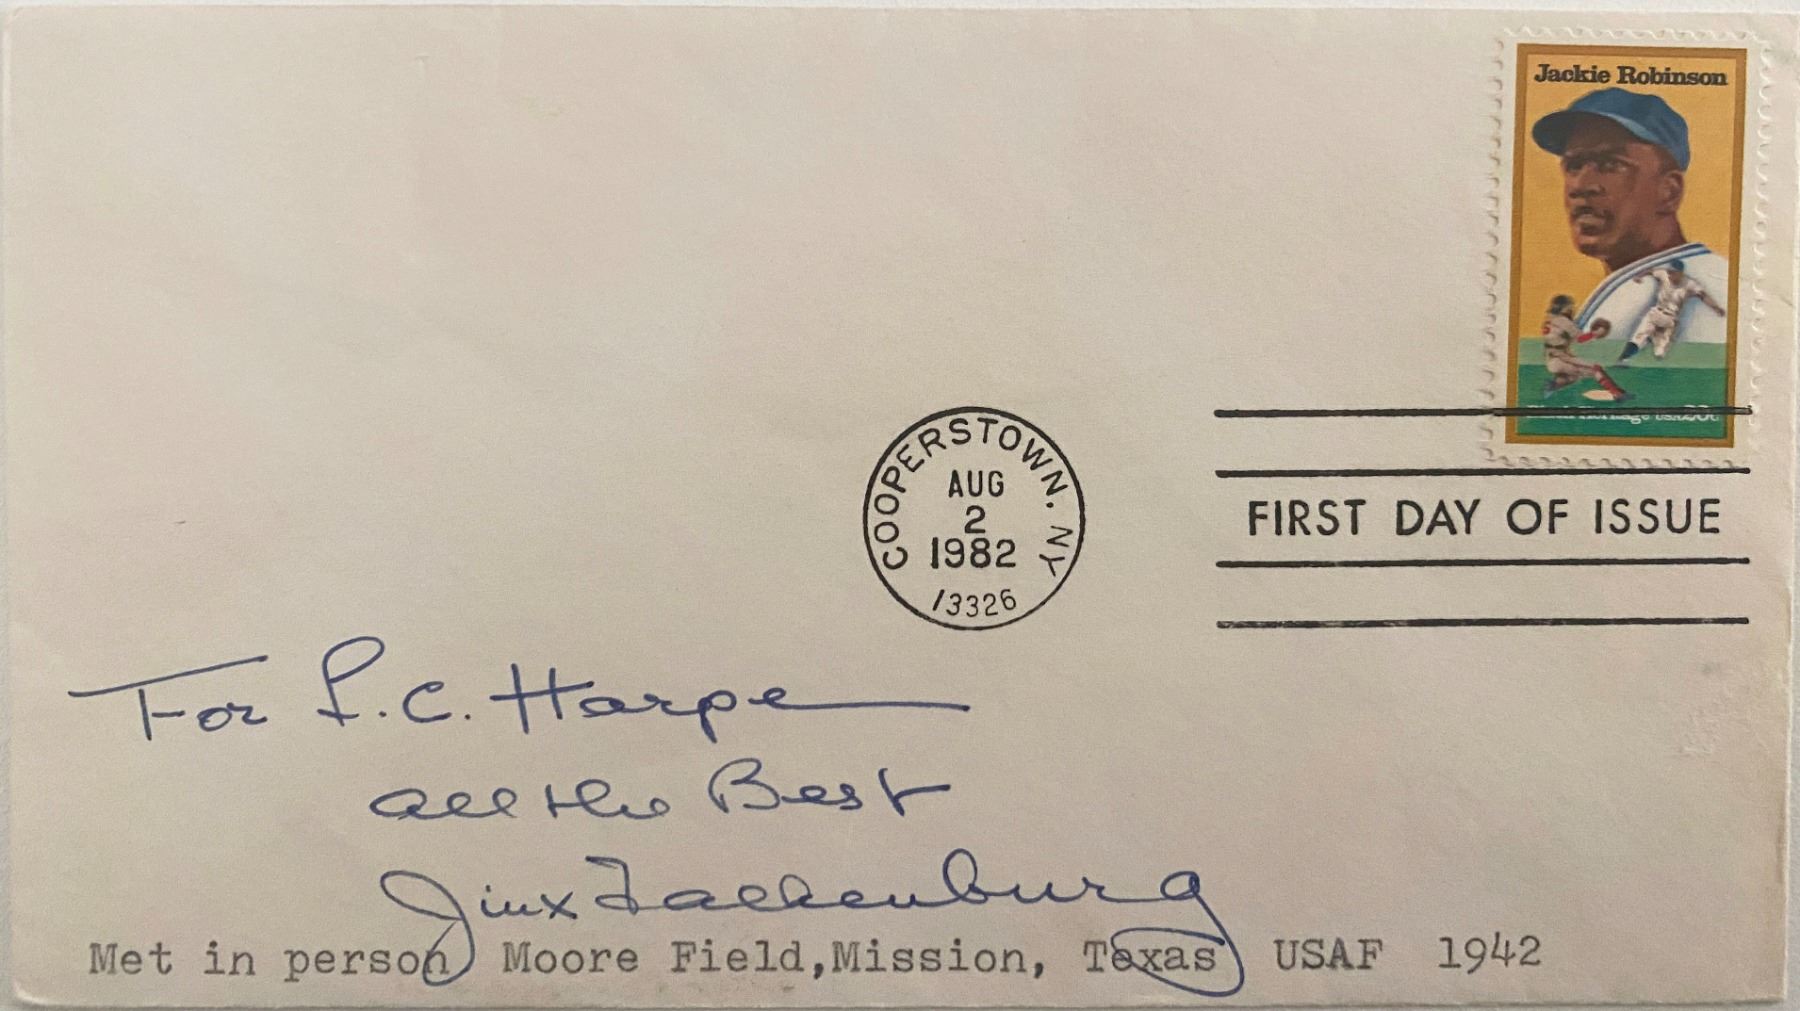 Jackie Robinson
Black Heritage USA 20c
COOPERSTOWN, NY
AUG
2
1982
13326
FIRST DAY OF ISSUE
For L.C. Harpe
all the Best
Jinx Falkenburg
Met in person Moore Field,Mission, Texas USAF 1942